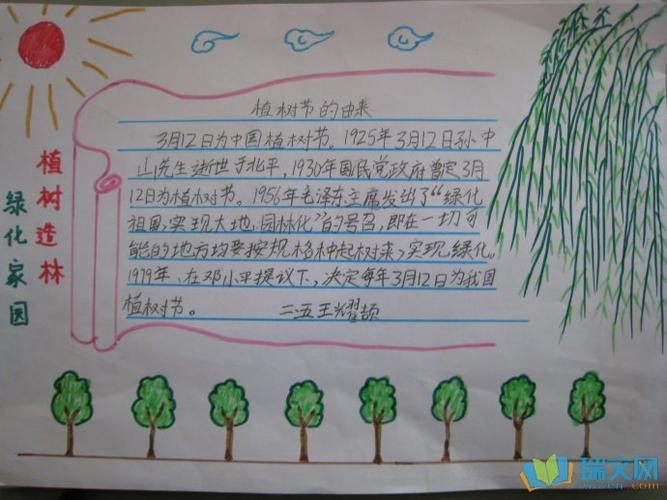 植树造林
绿化家园
植树节的由来
3月12日为中国植树节。1925年3月12日孙中
山先生逝世于北平,1930年国民党政府曾定3月
12日为植树节。1956年毛泽东主席发出了“绿化
祖国,实现大地园林化”的号召,即在一切可
能的地方均要按规格种起树来,实现绿化。
1979年、在邓小平提议下,决定每年3月12日为我国
植树节。 二.五王耀颉
瑞文网